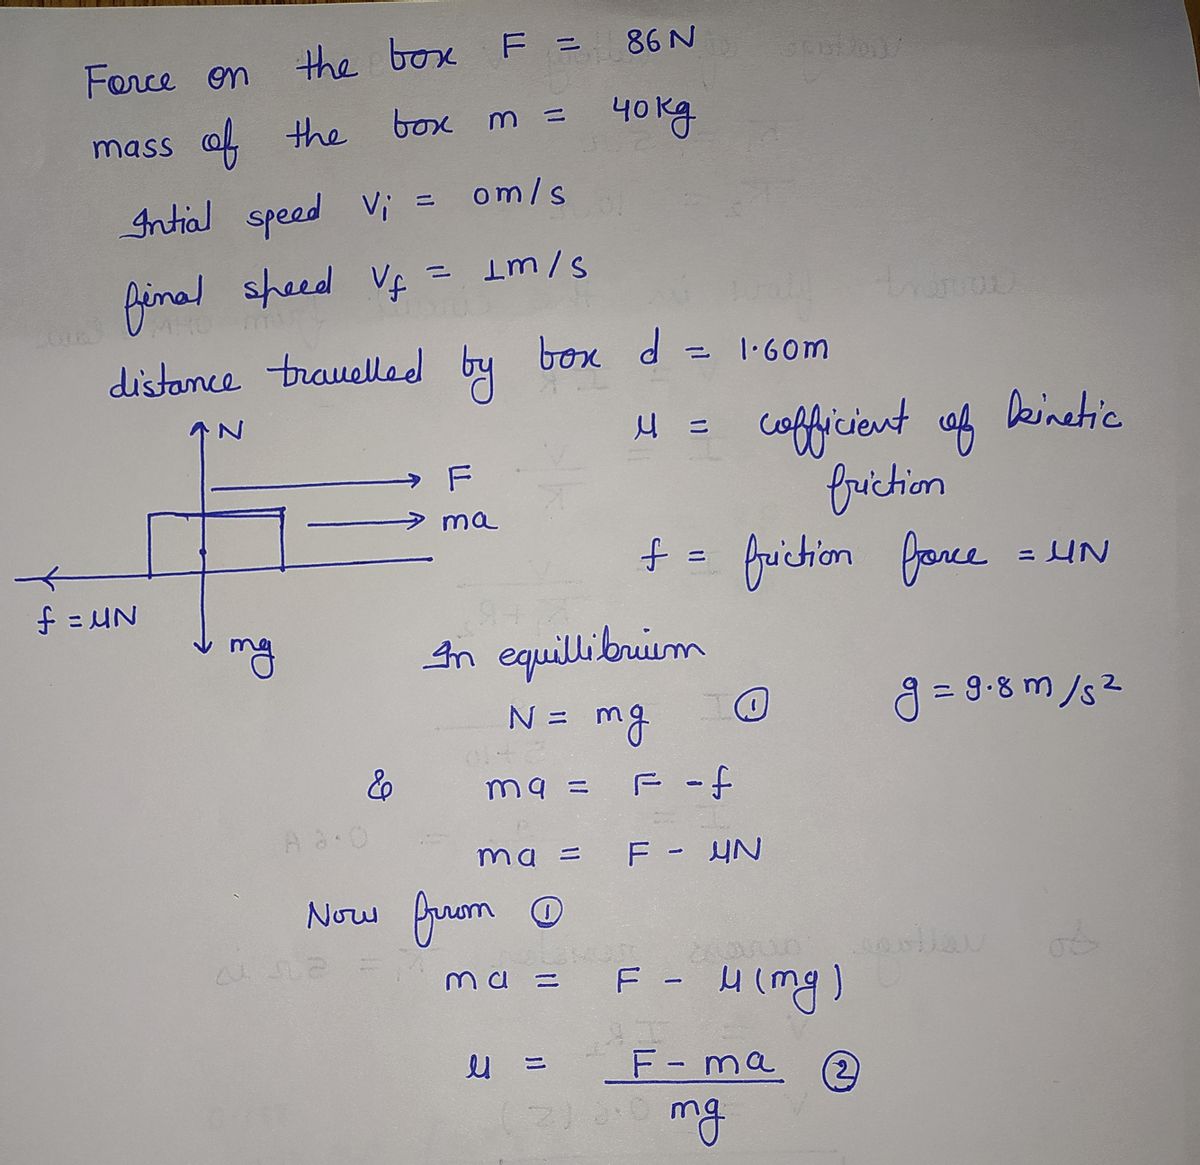 Force on the box F = 86 N
mass of the box m = 40 kg
Intial speed Vi = 0m/s
final speed Vf = 1m/s
distance travelled by box d = 1.60m
μ = cofficient of kinetic
friction
N
F
ma
f = friction force = μN
f = μN
mg
In equillibrium
N = mg ①
g = 9.8 m/s²
& ma = F - f
ma = F - μN
Now from ①
ma = F - μ(mg)
μ = F - ma ②
mg